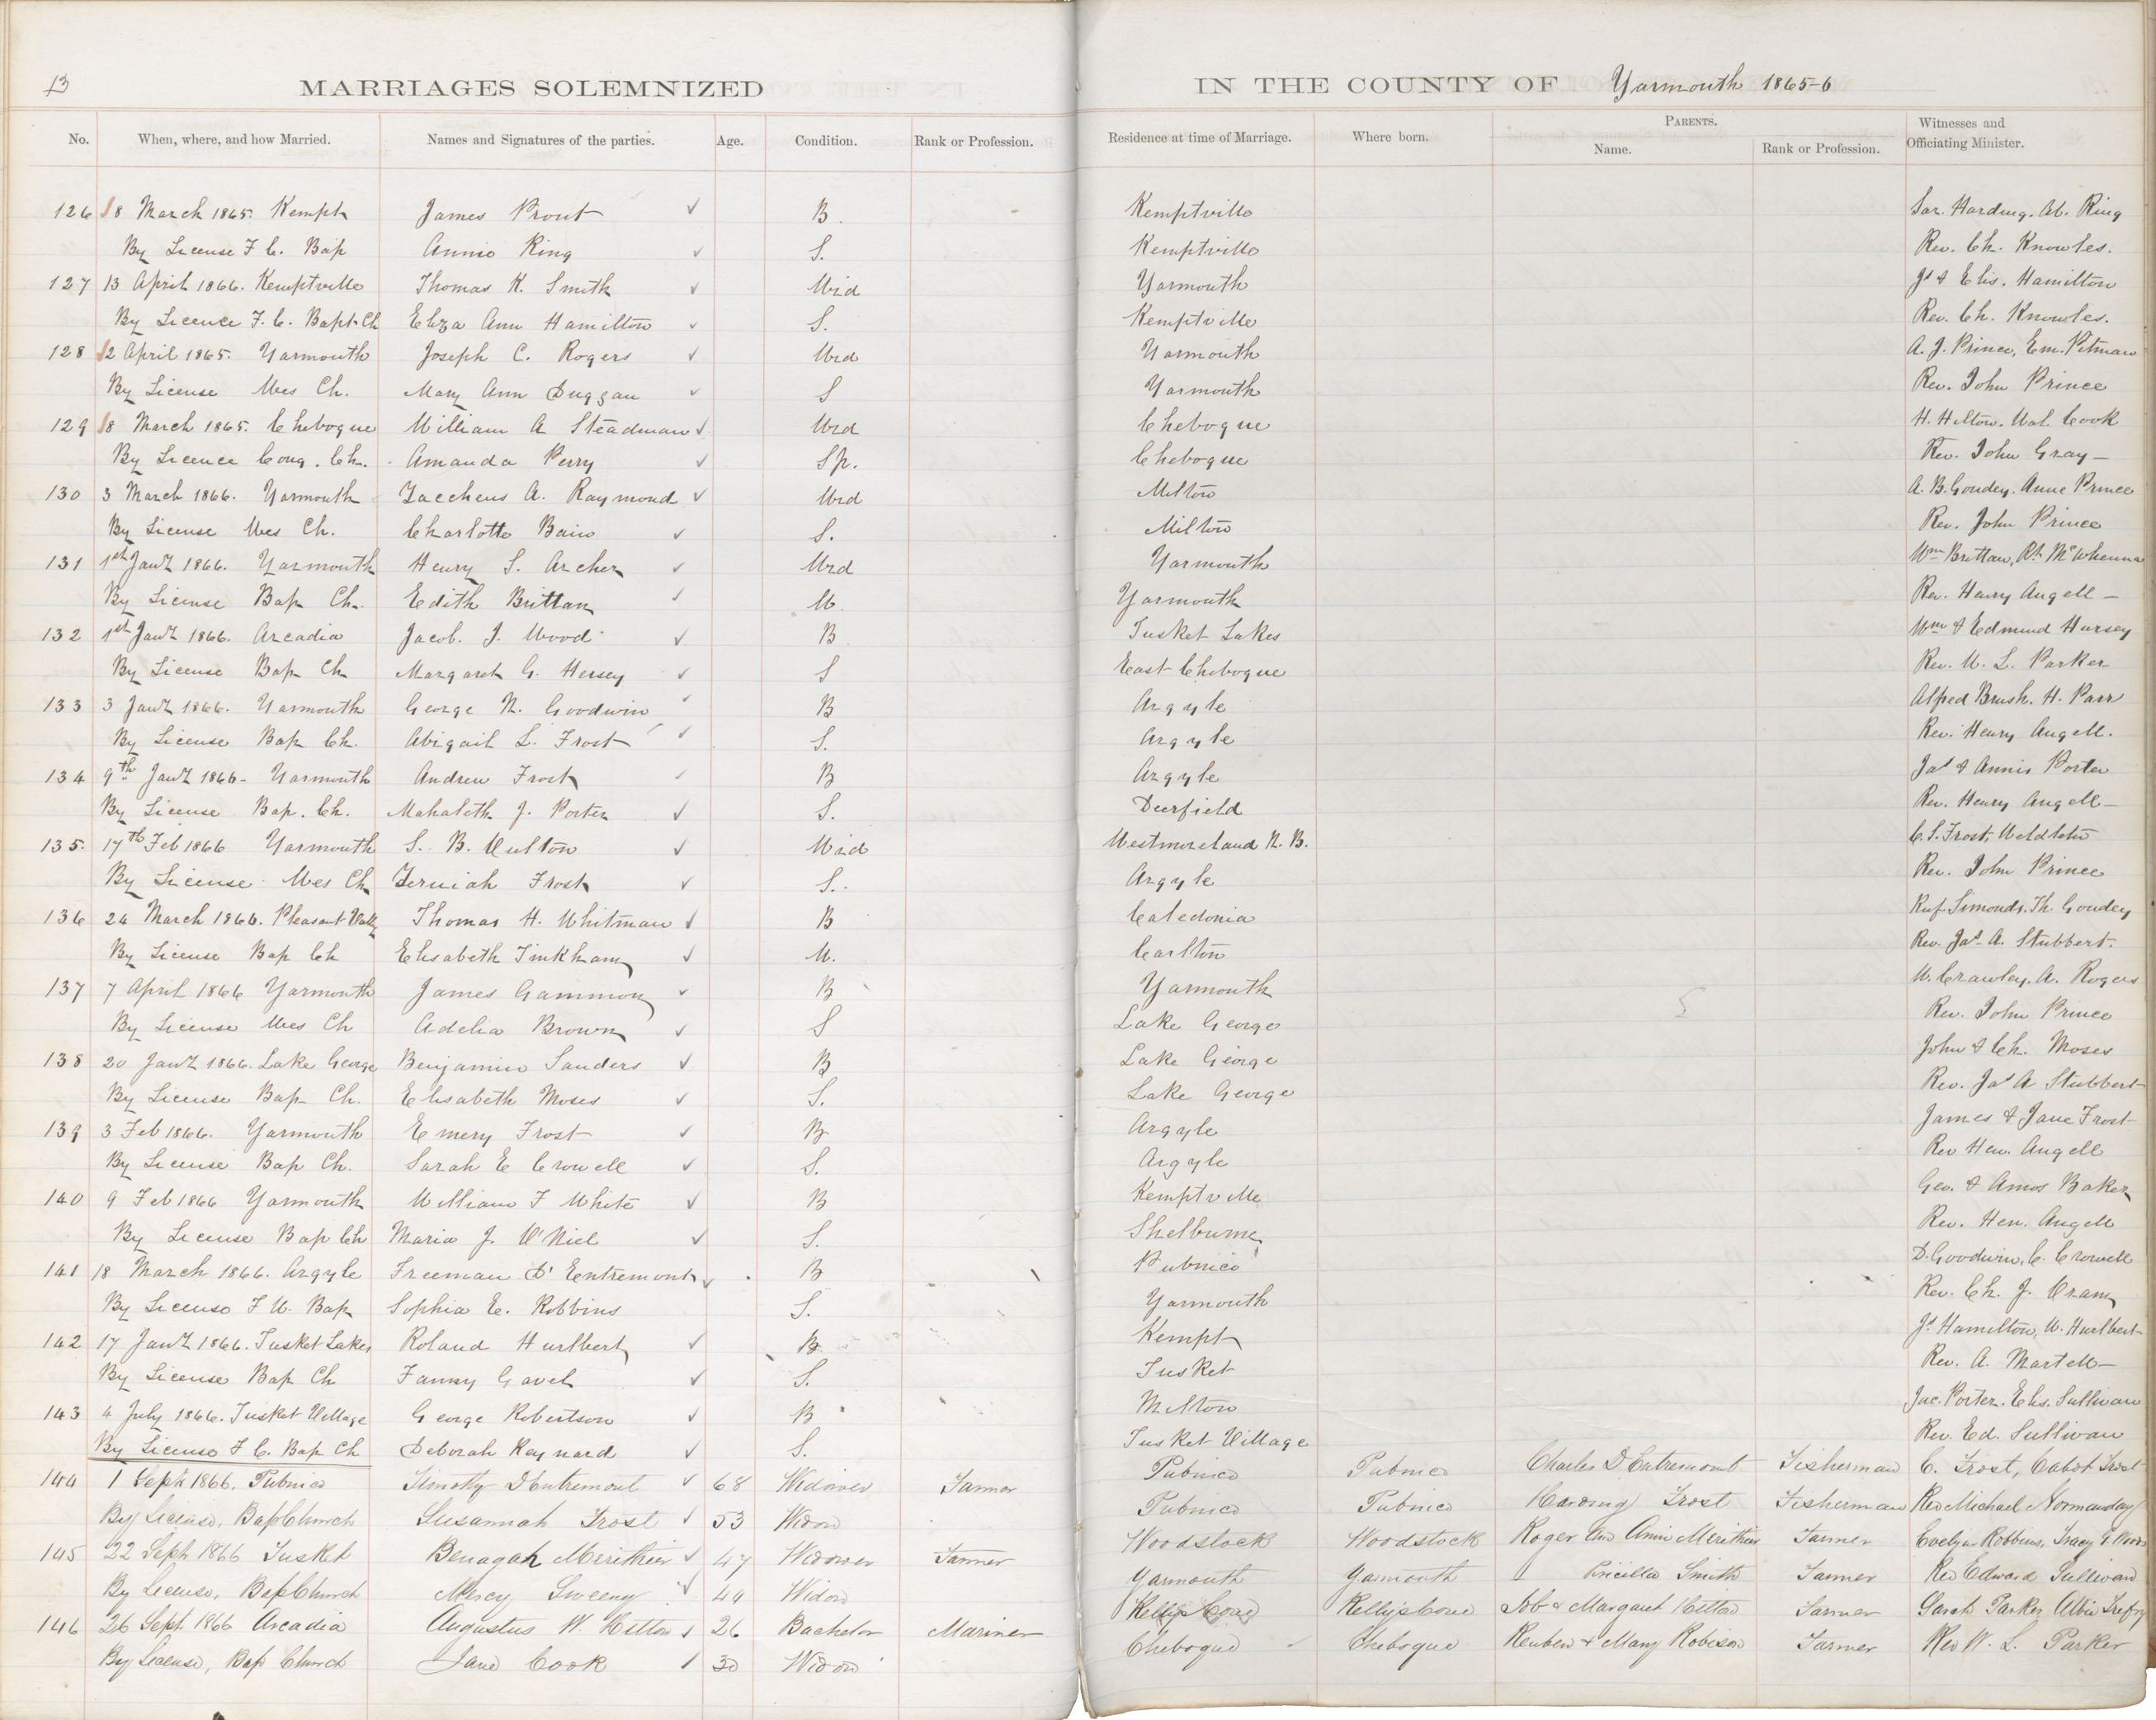 13
MARRIAGES SOLEMNIZED IN THE COUNTY OF Yarmouth 1865-6
No. When, where, and how Married. Names and Signatures of the parties. Age. Condition. Rank or Profession. Residence at time of Marriage. Where born. PARENTS. Name. Rank or Profession. Witnesses and Officiating Minister.
126 18 March 1865. Kempt James Prout B. Kemptville Sar. Harding. Ab. Ring
By License F. C. Bap Annie Ring S. Kemptville Rev. Ch. Knowles.
127 13 April 1866. Kemptville Thomas K. Smith Wid Yarmouth Js & Elis. Hamilton
By Licence F. C. Bapt. Ch Eliza Ann Hamilton S. Kemptville Rev. Ch. Knowles.
128 12 April 1865. Yarmouth Joseph C. Rogers Wid Yarmouth A. J. Prince, Em. Pitman
By License Wes Ch. Mary Ann Duggan S Yarmouth Rev. John Prince
129 18 March 1865. Chebogue William A Steadman Wid Chebogue H. Hilton. Wal. Cook
By Licence Cong. Ch. Amanda Perry Sp. Chebogue Rev. John Gray
130 3 March 1866. Yarmouth Zaccheus A. Raymond Wid Milton A. B. Goudey. Anne Prince
By License Wes Ch. Charlotte Bain S. Milton Rev. John Prince
131 1st Jany 1866. Yarmouth Henry S. Archer Wid Yarmouth Wm Brittan, Rt.
By License Bap Ch. Edith Brittan W. Yarmouth Rev. Henry Angell
132 1st Jany 1866. Arcadia Jacob. J. Wood B Tusket Lakes Wm & Edmund Hersey
By License Bap Ch Margaret G. Hersey S East Chebogue Rev. W. L. Parker
133 3 Jany 1866. Yarmouth George N. Goodwin B Argyle Alfred Brush. H. Parr
By License Bap Ch. Abigail L. Frost S. Argyle Rev. Henry Angell.
134 9th Jany 1866 Yarmouth Andrew Frost B Argyle Jas & Annis Porter
By License Bap. Ch. Mahaleth J. Porter S. Deerfield Rev. Henry Angell
135. 17th Feb 1866 Yarmouth S. B. Wid Westmoreland N. B. C. S. Frost,
By License Wes Ch Zeruiah Frost S. Argyle Rev. John Prince
136 24 March 1866. Pleasant Vally Thomas H. Whitman B Caledonia Ruf. Simonds. Th. Goudey
By License Bap Ch Elisabeth Tinkham W. Carlton Rev. Jas. A. Stubbert.
137 7 April 1866 Yarmouth James Gammon B Yarmouth W. Crawley. A. Rogers
By License Wes Ch Adelia Brown S Lake George Rev. John Prince
138 20 Jany 1866. Lake George Benjamin Sanders B Lake George John & Ch. Moses
By License Bap Ch. Elisabeth Moses S. Lake George Rev. Jas A Stubbert
139 3 Feb 1866. Yarmouth Emery Frost B Argyle James & Jane Frost
By License Bap Ch. Sarah E Crowell S. Argyle Rev Hen. Angell
140 9 Feb 1866 Yarmouth William F White B Kemptville Geo. & Amos Baker
By License Bap Ch Maria J. O'Niel S. Shelburne Rev. Hen. Angell
141 18 March 1866. Argyle Freeman D' Entremont B Pubnico D. Goodwin, C. Crowell
By License F W. Bap Sophia E. Robbins S. Yarmouth Rev. Ch. J. Oram
142 17 Jany 1866. Tusket Lakes Roland Hurlbert B Kempt Js Hamilton, W. Hurlbert
By License Bap Ch Fanny Gavel S. Tusket Rev. A. Martell
143 4 July 1866. Tusket Village George Robertson B Milton Jac. Porter. Elis. Sullivan
By License F C. Bap Ch Deborah Raynard S. Tusket Village Rev. Ed. Sullivan
144 1 Sept 1866. Pubnico Timothy DEntremont 68 Widower Farmer Pubnico Pubnico Charles D Entremont Fisherman C. Frost, Cabot Frost
By License, Bap Church Susannah Frost 53 Widow Pubnico Pubnico Harding Frost Fisherman Rev Michael Normanday
145 22 Sept 1866 Tusket Benagah Merithier 47 Widower Farmer Woodstock Woodstock Roger and Annie Merithier Farmer Evelyn Robbins, Tracy G. Wood
By License, Bap Church Mercy Sweeny 44 Widow Yarmouth Yarmouth Pricilla Smith Farmer Rev Edward Sullivan
146 26 Sept 1866 Arcadia Augustus W. Hilton 26 Bachelor Mariner Kellys Cove Kellys Cove Job & Margaret Hilton Farmer Sarah Parker Albin Trefry
By License, Bap Church Jane Cook 30 Widow Chebogue Chebogue Reuben & Mary Robison Farmer Rev W. L. Parker